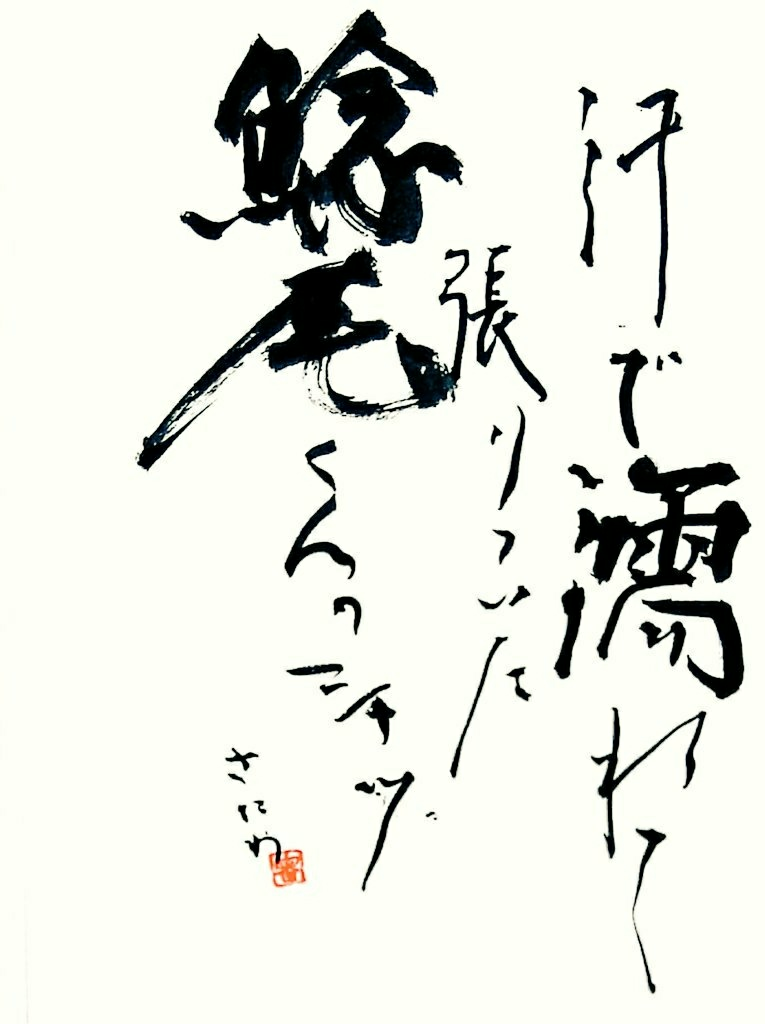 汗で濡れて
張りついた
鯰尾くんのシャツ
さにわ